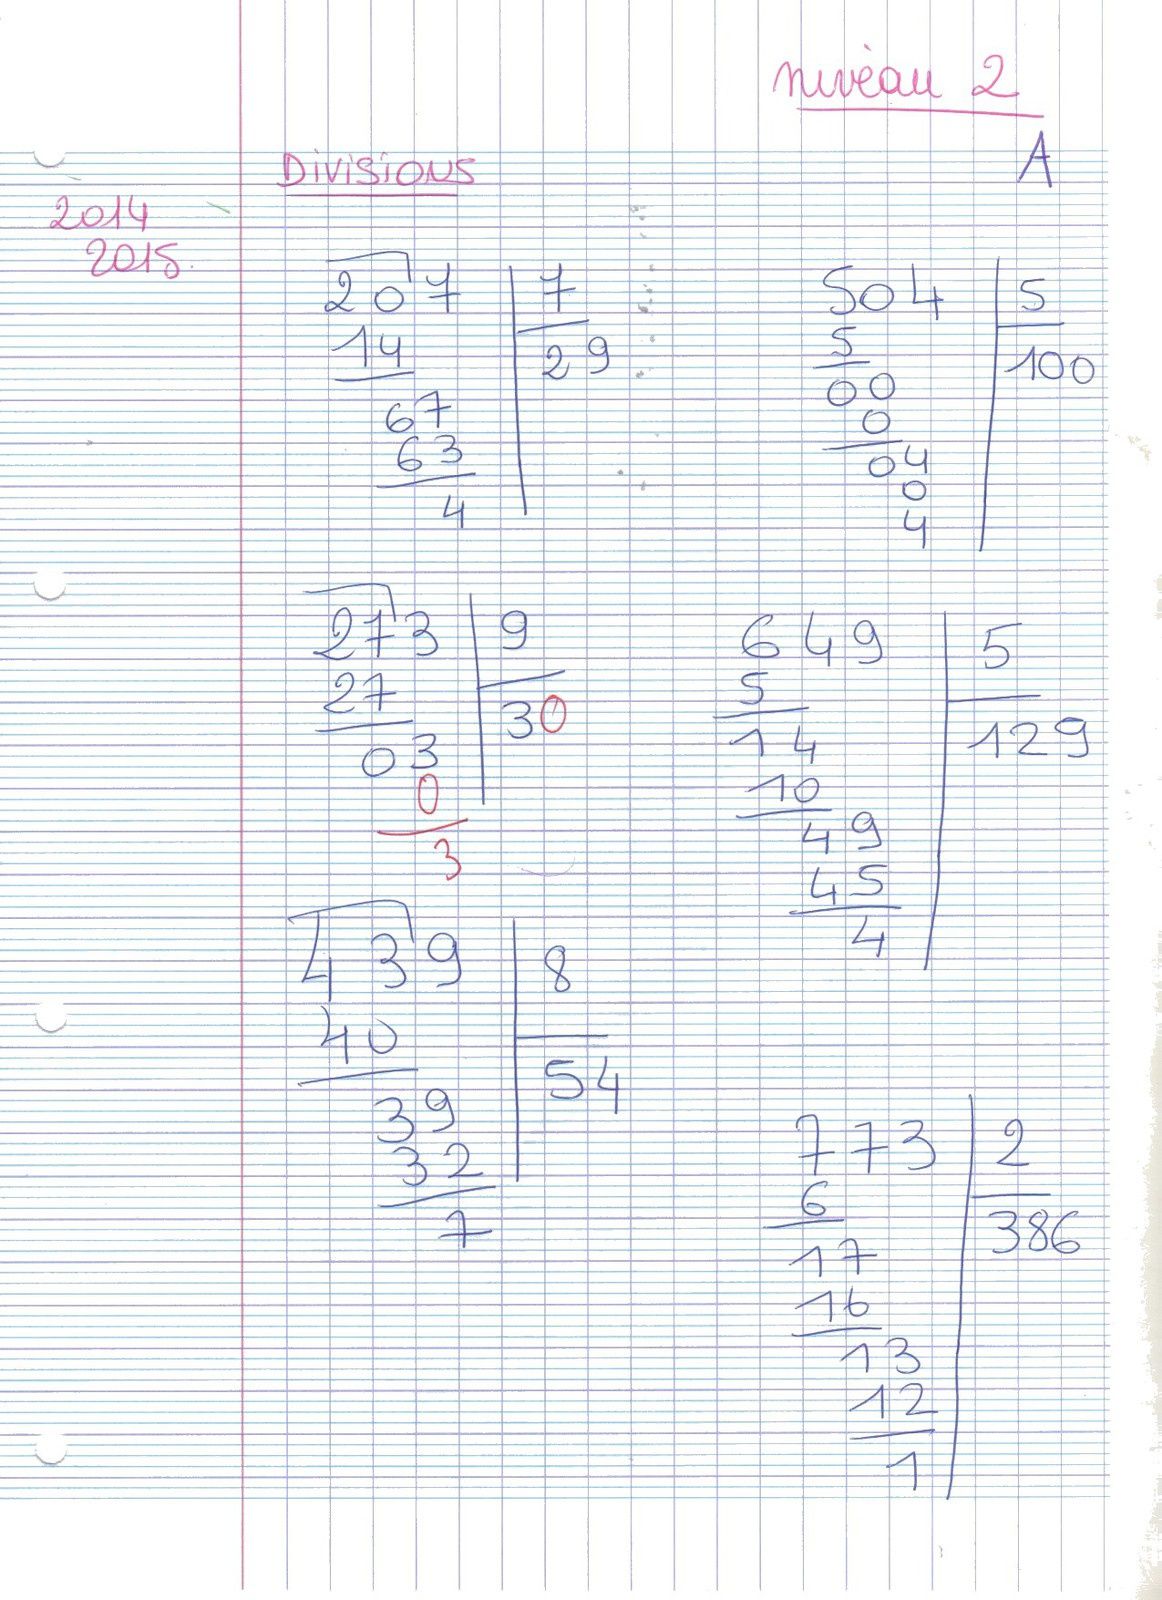 nivèau 2
A
DIVISIONS
2014
2015.
207 7
14 29
67
63
4
504 5
5 100
00
0
04
0
4
273 9
27 30
03
0
3
649 5
5 129
14
10
49
45
4
439 8
40 54
39
32
7
773 2
6 386
17
16
13
12
1